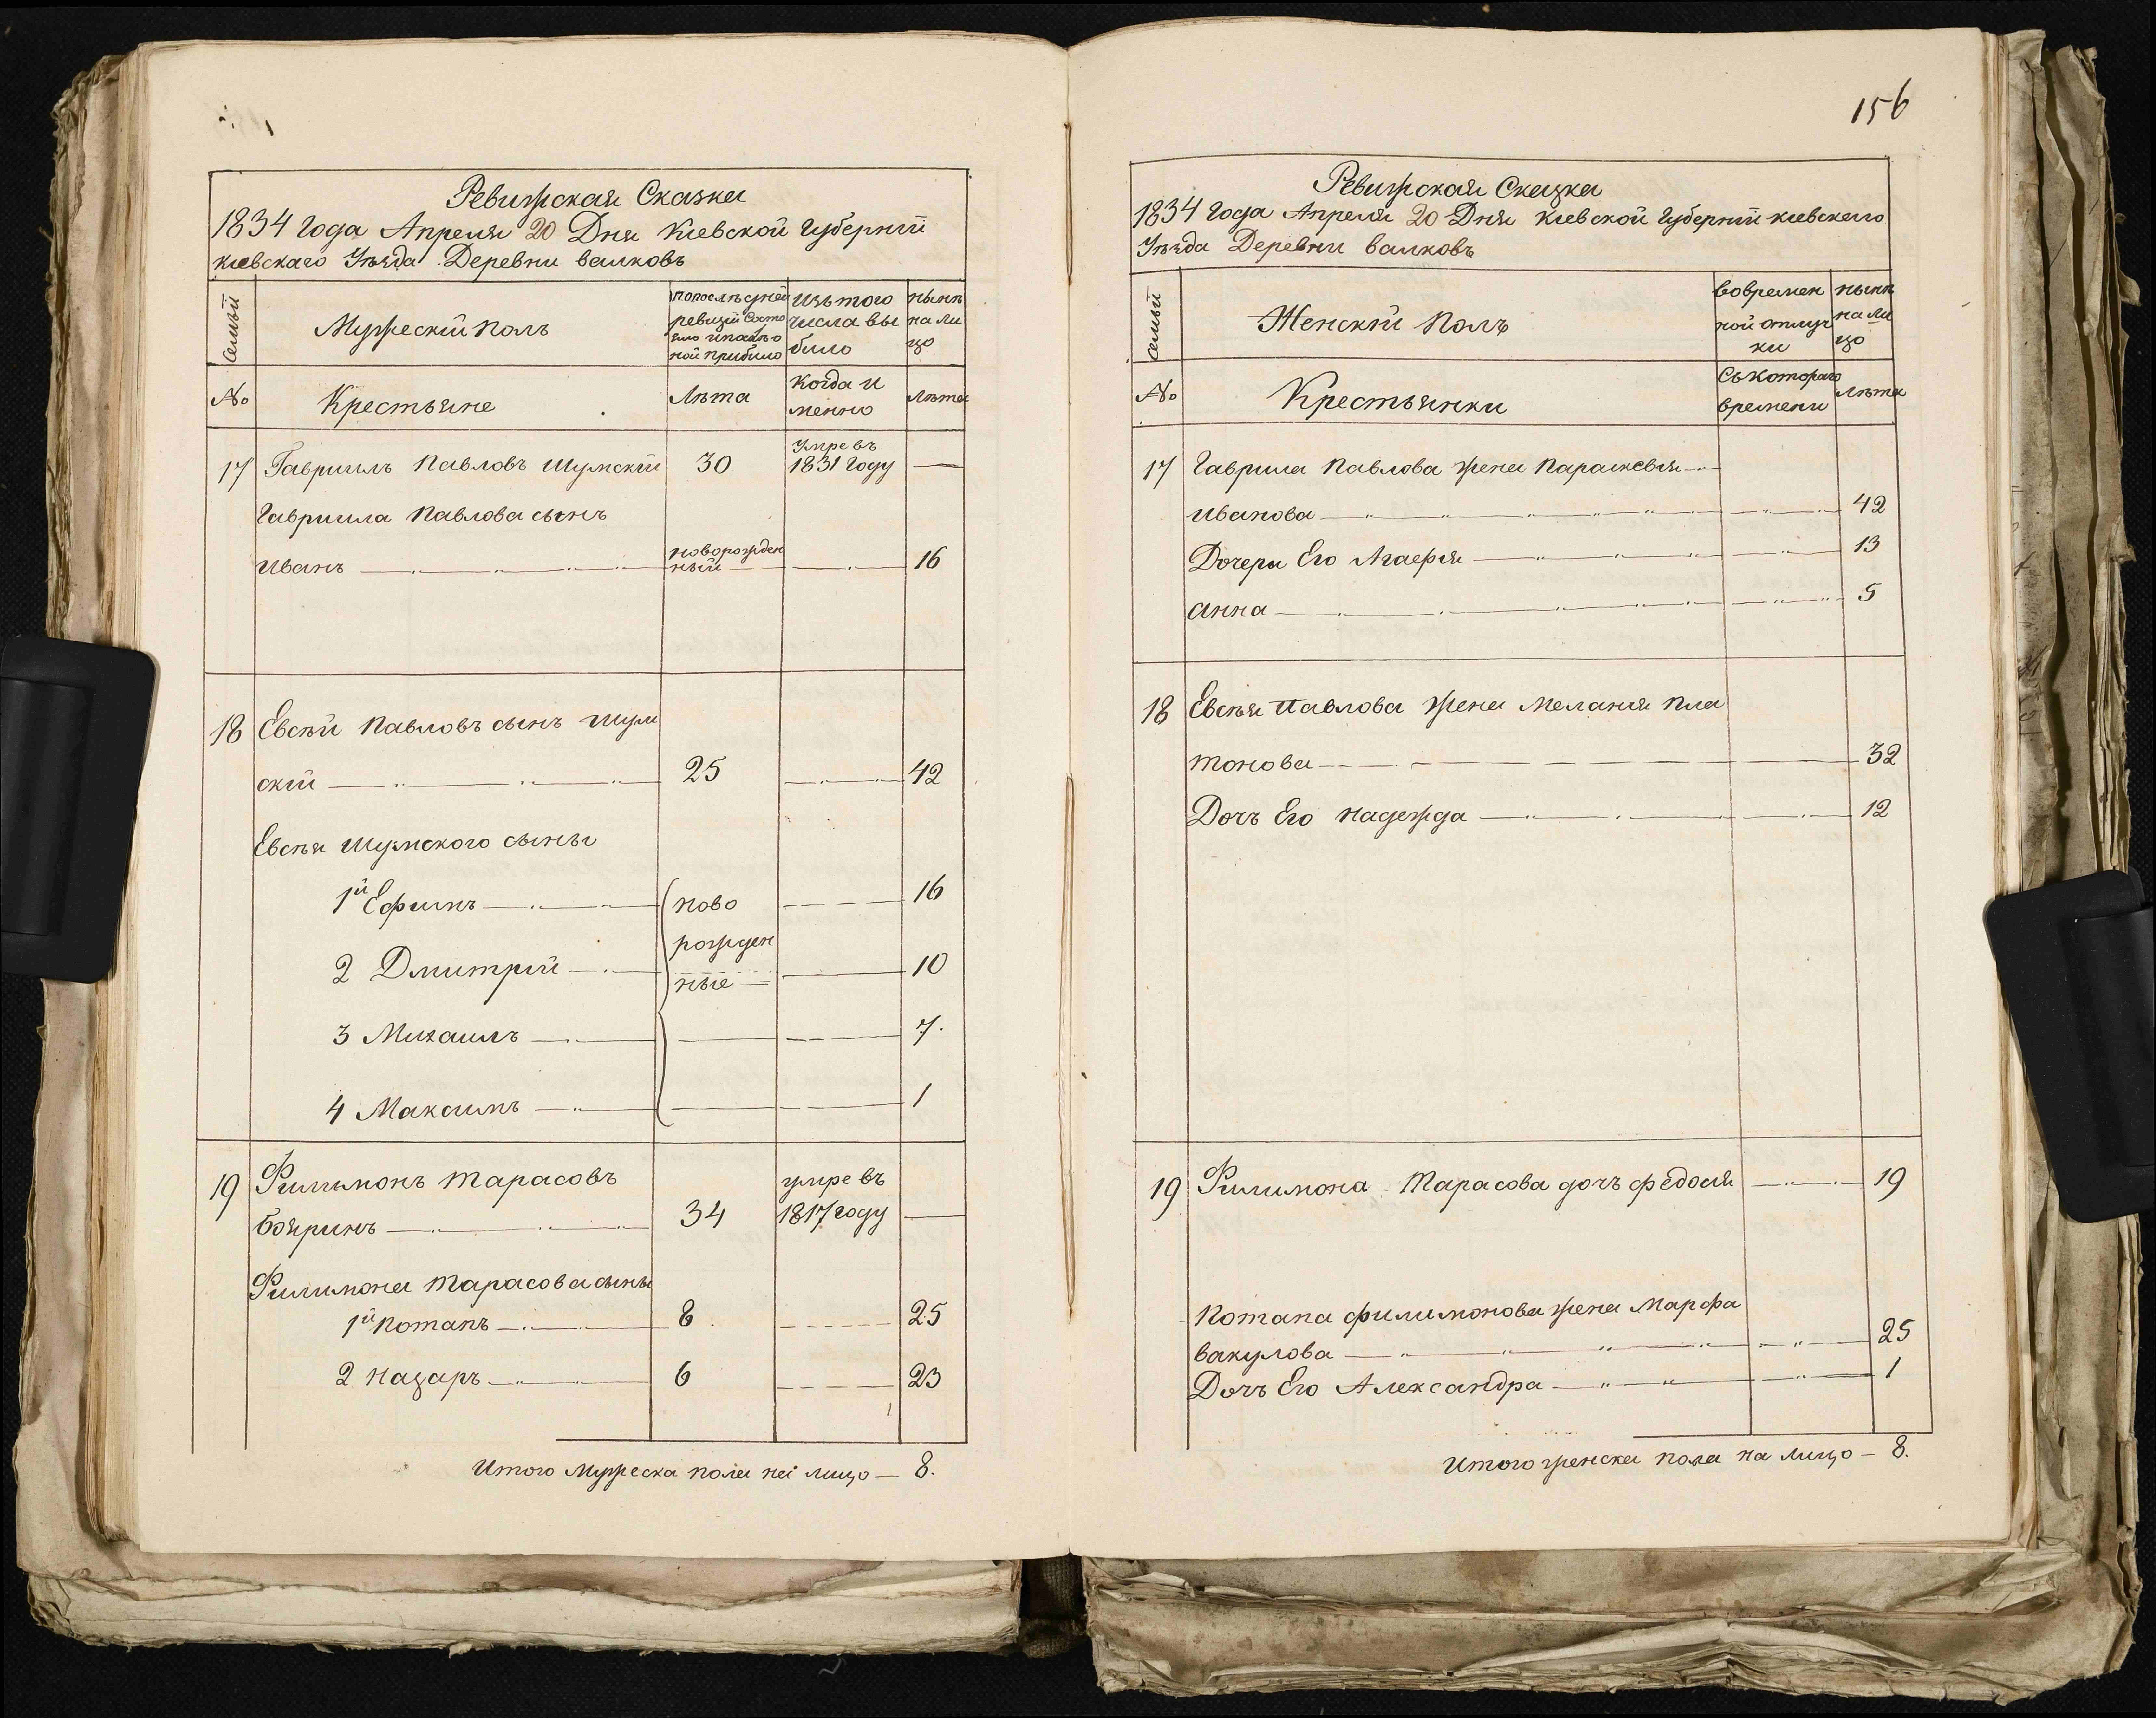 Ревизская Сказка
1834 года Апреля 20 Дня Кіевской Губерніи
кіевскаго Уѣзда Деревни валковъ
Семьи
Мужескій полъ
попослѣдней ревизіи Состо яло ипослѣ оной прибыло
Изътого числа вы было
нынѣ на ли цо
№
Крестьяне
Лѣта
Когда и менно
Лѣта
17 Гавріилъ Павловъ Шумскій 30 Умре въ 1831 году —
Гавріила Павлова сынъ
Иванъ новорожден ный 16
18 Евсѣй Павловъ сынъ Шум
скій 25 42
Евсѣя Шумского сыны
1й Ефимъ ново 16
рожден
2 Дмитрій ные 10
3 Михаилъ 7.
4 Максимъ 1
19 Филимонъ Тарасовъ умре въ
Бояринъ 34 1817 году —
Филимона Тарасова сыны
1й Потапъ 8 25
2 Назаръ 6 23
Итого мужеска пола на лицо — 8.
156
Ревизская Сказка
1834 года Апреля 20 Дня Кіевской Губерніи кіевскаго
Уѣзда Деревни валковъ
Семьи
Женскій Полъ
вовремен ной отлуч ки
нынѣ на ли цо
№
Крестьянки
Съкотораго времени
Лѣта
17 Гаврила Павлова жена Параскевія
Иванова 42
Дочери Его Агафія 13
Анна 5
18 Евсѣя Павлова жена Меланія Пла
тонова 32
Дочъ Его Надежда 12
19 Филимона Тарасова дочъ Федосія 19
Потапа филимонова жена Марфа
вакулова 25
Дочъ Его Александра 1
Итого женска пола на лицо — 8.